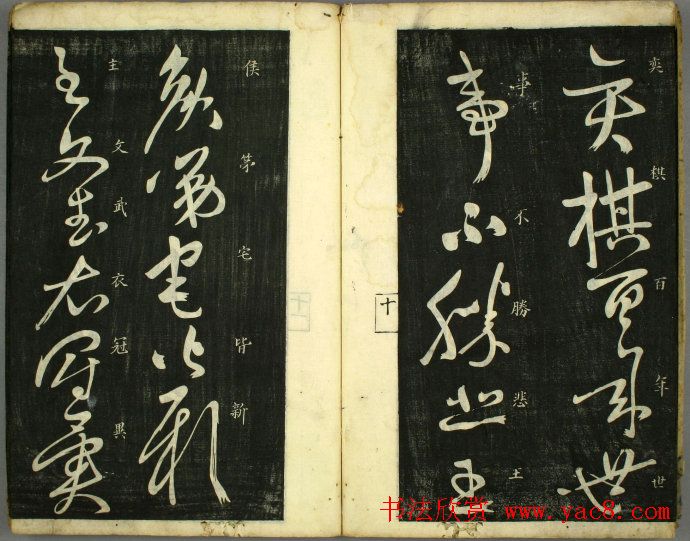 奕棋百年世
事不勝悲王
侯第宅皆新
主文武衣冠異
奕棋百年世
事不勝悲王
侯第宅皆新
主文武衣冠異
十
书法欣赏 www.yac8.com